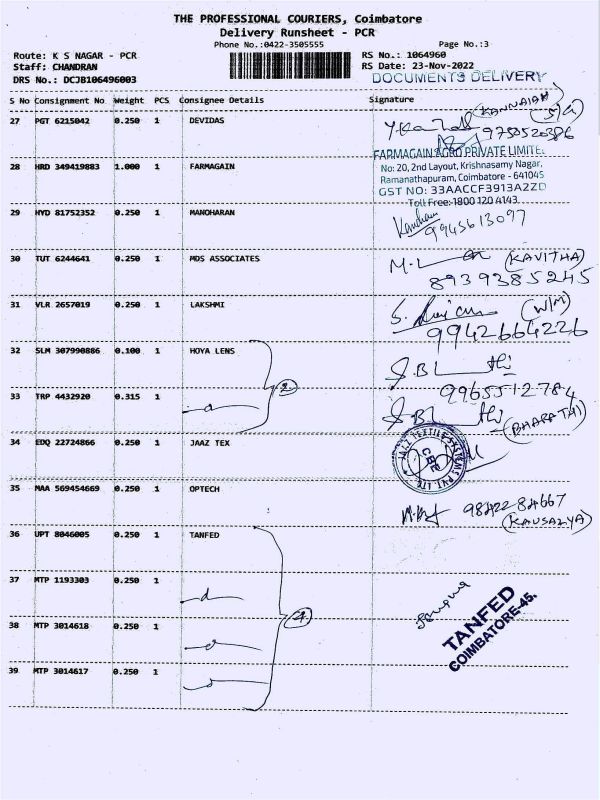 THE PROFESSIONAL COURIERS, Coimbatore
Delivery Runsheet - PCR
Phone No.:0422-3505555
Page No.:3
Route: K S NAGAR - PCR
RS No.: 1064960
Staff: CHANDRAN
RS Date: 23-Nov-2022
DRS No.: DCJB106496003
DOCUMENTS DELIVERY
S No Consignment No Weight PCS Consignee Details Signature
27 PGT 6215042 0.250 1 DEVIDAS
(KANNAIAH S/G)
9750520386
28 HRD 349419883 1.000 1 FARMAGAIN
FARMAGAIN AGRO PRIVATE LIMITE
No: 20, 2nd Layout, Krishnasamy Nagar,
Ramanathapuram, Coimbatore - 641045
GST NO: 33AACCF3913A2ZD
Toll Free: 1800 120 4143
29 HYD 81752352 0.250 1 MANOHARAN
9945613097
30 TUT 6244641 0.250 1 MDS ASSOCIATES
(KAVITHA)
8939385245
31 VLR 2657019 0.250 1 LAKSHMI
(W/M)
9942664226
32 SLM 307990886 0.100 1 HOYA LENS
9965512784
33 TRP 4432920 0.315 1
2
(BHARATHI)
34 EDQ 22724866 0.250 1 JAAZ TEX
JAAZ TEXTILE SYSTEMS PVT. LTD.
CBE
35 MAA 569454669 0.250 1 OPTECH
9842284667
(KAUSALYA)
36 UPT 8046005 0.250 1 TANFED
37 MTP 1193303 0.250 1
38 MTP 3014618 0.250 1
4
TANFED
COIMBATORE-45.
39 MTP 3014617 0.250 1